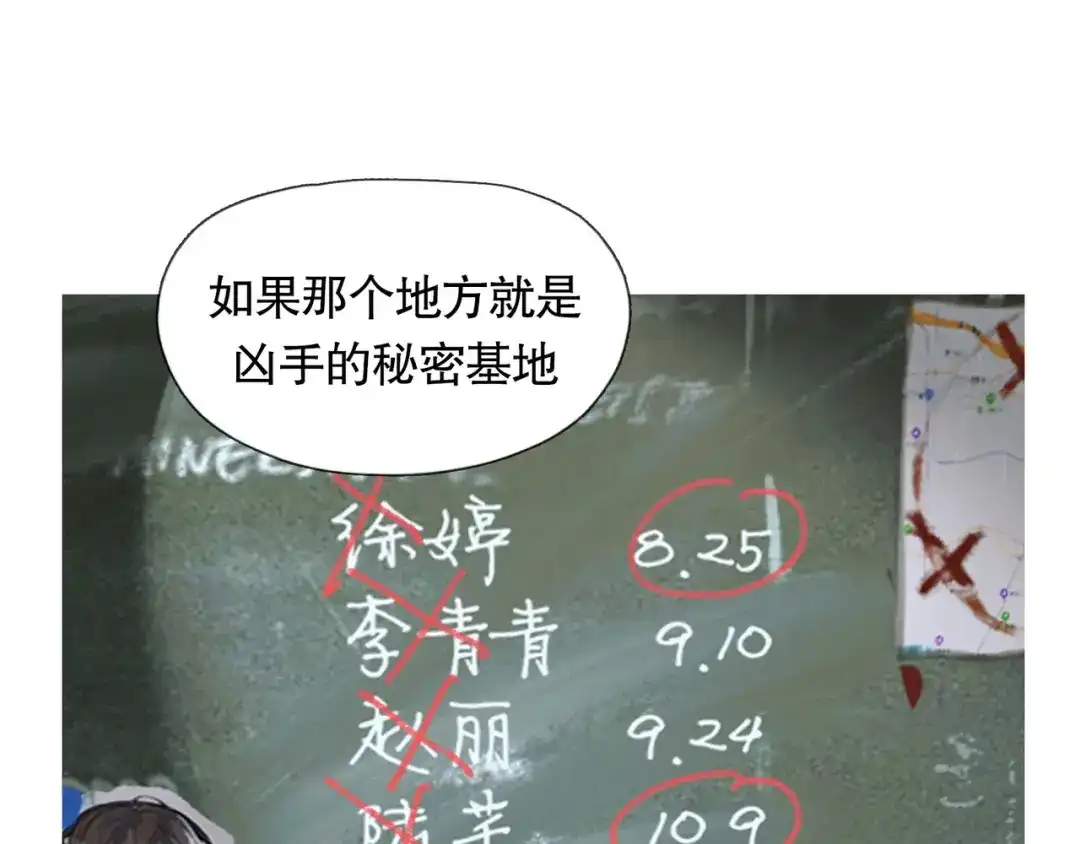 如果那个地方就是
凶手的秘密基地
徐婷 8.25
李青青 9.10
赵丽 9.24
陆芊 10 9